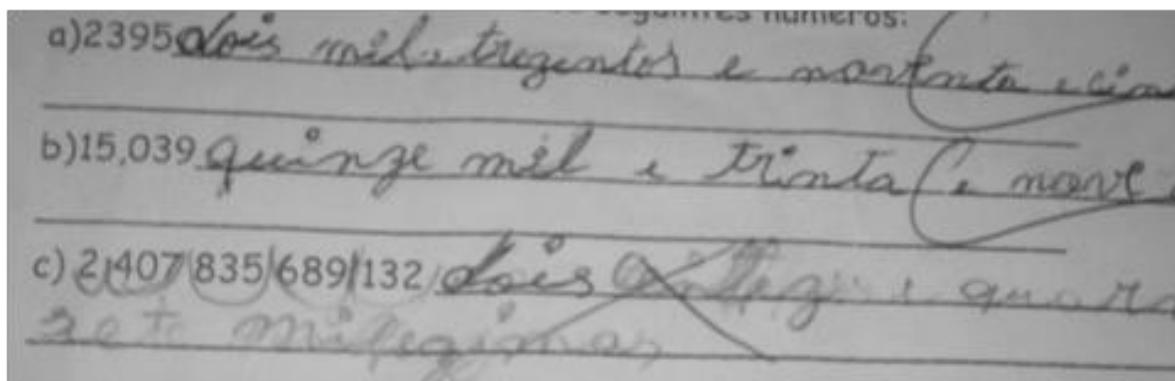 seguintes números:
a)2395 dois mil trezentos e noventa e cin
b)15,039 quinze mil e trinta e nove
c) 2 407 835 689 132 dois e quar
sete milezimas